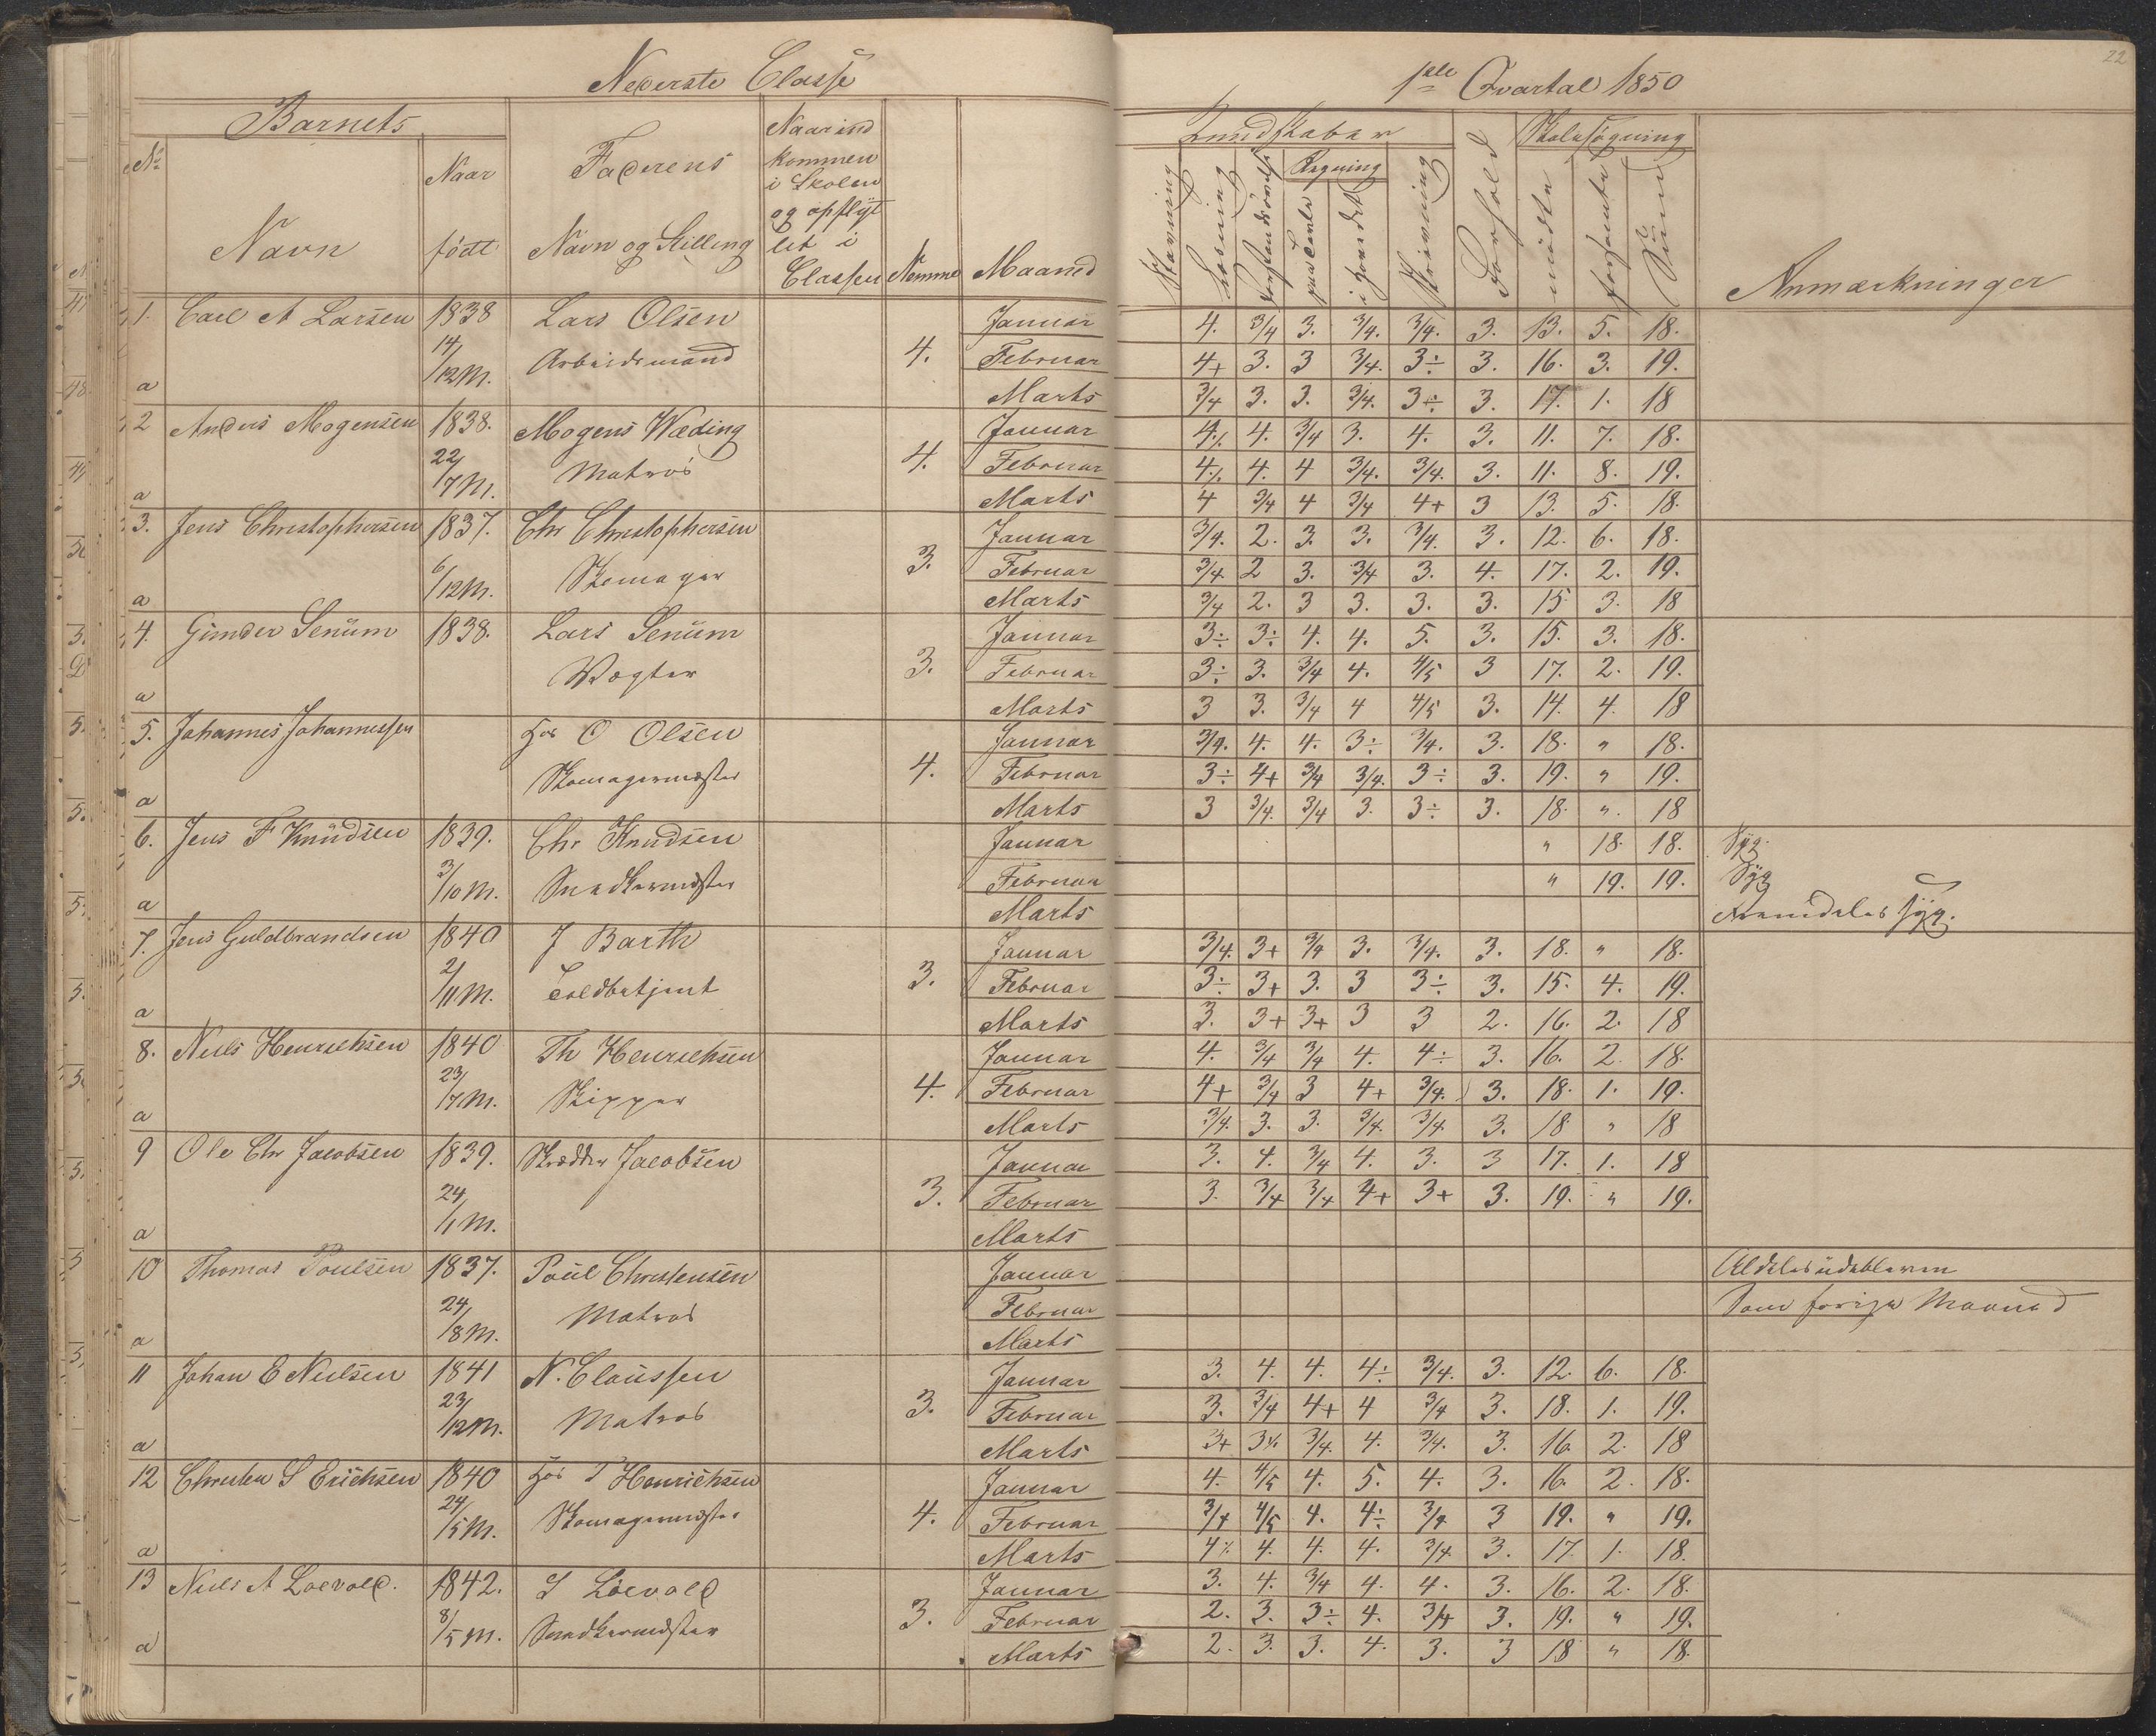 22
Nederste Classe
1ste Qvartal 1850
Barnets
No
Navn
Naar
født
Faderens
Navn og Stilling
Naar ind
kommen
i Skolen
og opflyt
tet i
Classen
Nemme
Maaned
Kundskaber
Stavning
Læsning
Forstandsøvelse
Regning
paa Tavle
i Hovedet
Skrivning
Forhold
Skolesøgning
mødte
forsømte
Sum
Anmærkninger
1. Carl A Larsen 1838 Lars Olsen Januar 4. 3/4 3. 3/4. 3/4. 3. 13. 5. 18.
14/12 M. Arbeidsmand 4. Februar 4+ 3. 3 3/4. 3÷ 3. 16. 3. 19.
a Marts 3/4 3. 3. 3/4. 3÷ 3. 17. 1. 18
2 Anders Mogensen 1838. Mogens Wæding Januar 4⁒ 4. 3/4 3. 4. 3. 11. 7. 18.
22/7 M. Matros 4. Februar 4⁒ 4. 4 3/4. 3/4. 3. 11. 8. 19.
a Marts 4 3/4 4 3/4 4+ 3 13. 5. 18.
3. Jens Christophersen 1837. Chr Christophersen Januar 3/4. 2. 3. 3. 3/4. 3. 12. 6. 18.
6/12 M. Skomager 3. Februar 3/4 2 3. 3/4 3. 4. 17. 2. 19.
a Marts 3/4 2. 3 3. 3. 3. 15 3. 18
4. Gunder Senum 1838. Lars Senum Januar 3÷ 3÷ 4. 4. 5. 3. 15. 3. 18.
Vægter 3. Februar 3÷ 3. 3/4 4. 4/5 3 17. 2. 19.
a Marts 3 3. 3/4 4 4/5 3. 14. 4. 18
5. Johannes Johannessen Hos O Olsen Januar 3/4. 4. 4. 3÷ 3/4. 3. 18. " 18.
Skomagermester 4. Februar 3÷ 4+ 3/4 3/4. 3÷ 3. 19. " 19.
a Marts 3 3/4. 3/4 3. 3÷ 3. 18. " 18
6. Jens F Knudsen 1839. Chr Knudsen Januar " 18. 18. Syg.
3/10 M. Snedkermester Februar " 19. 19. Syg
a Marts Fremdeles syg.
7. Jens Guldbrandsen 1840 J Barth Januar 3/4. 3+ 3/4 3. 3/4. 3. 18. " 18.
2/11 M. Toldbetjent 3. Februar 3÷ 3+ 3. 3 3÷ 3. 15. 4. 19.
a Marts 3. 3+ 3+ 3 3 2. 16. 2. 18
8. Niels Henrichsen 1840 Th Henrichsen Januar 4. 3/4 3/4 4. 4÷ 3. 16. 2. 18.
23/7 M. Skipper 4. Februar 4+ 3/4 3 4+ 3/4. 3. 18. 1. 19.
a Marts 3/4. 3. 3. 3/4. 3/4. 3. 18 " 18
9 Ole Chr Jacobsen 1839. Skrædder Jacobsen Januar 3. 4. 3/4 4. 3. 3 17. 1. 18
24/11 M. 3. Februar 3. 3/4 3/4 4+ 3+ 3. 19. " 19.
a Marts
10 Thomas Poulsen 1837. Poul Christensen Januar Aldeles udebleven
24/8 M. Matros Februar Som forrige Maaned
a Marts
11 Johan E Nielsen 1841 N. Claussen Januar 3. 4. 4. 4÷ 3/4. 3. 12. 6. 18.
23/12 M. Matros 3. Februar 3. 3/4 4+ 4 3/4 3. 18. 1. 19.
a Marts 3+ 3⁒ 3/4. 4. 3/4. 3. 16. 2. 18
12 Christen S Erichsen 1840 Hos T Henrichsen Januar 4. 4/5 4. 5. 4. 3. 16. 2. 18.
24/5 M. Skomagermester 4. Februar 3/4 4/5 4. 4÷ 3/4 3 19. " 19.
a Marts 4⁒ 4. 4. 4. 3/4. 3. 17. 1. 18.
13 Niels A Loevold. 1842. J Löevold Januar 3. 4. 3/4 4. 4. 3. 16. 2. 18.
8/5 M. Snedkermester 3. Februar 2. 3. 3÷ 4. 3/4 3. 19. " 19.
a Marts 2. 3. 3. 4. 3. 3 18 " 18.